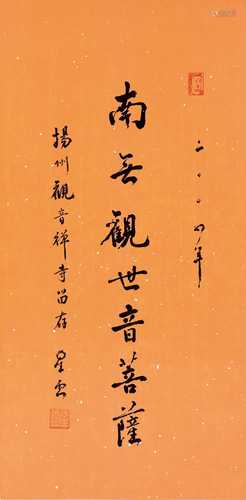 二〇〇四年
南无觀世音菩薩
揚州觀音禅寺留存 星雲